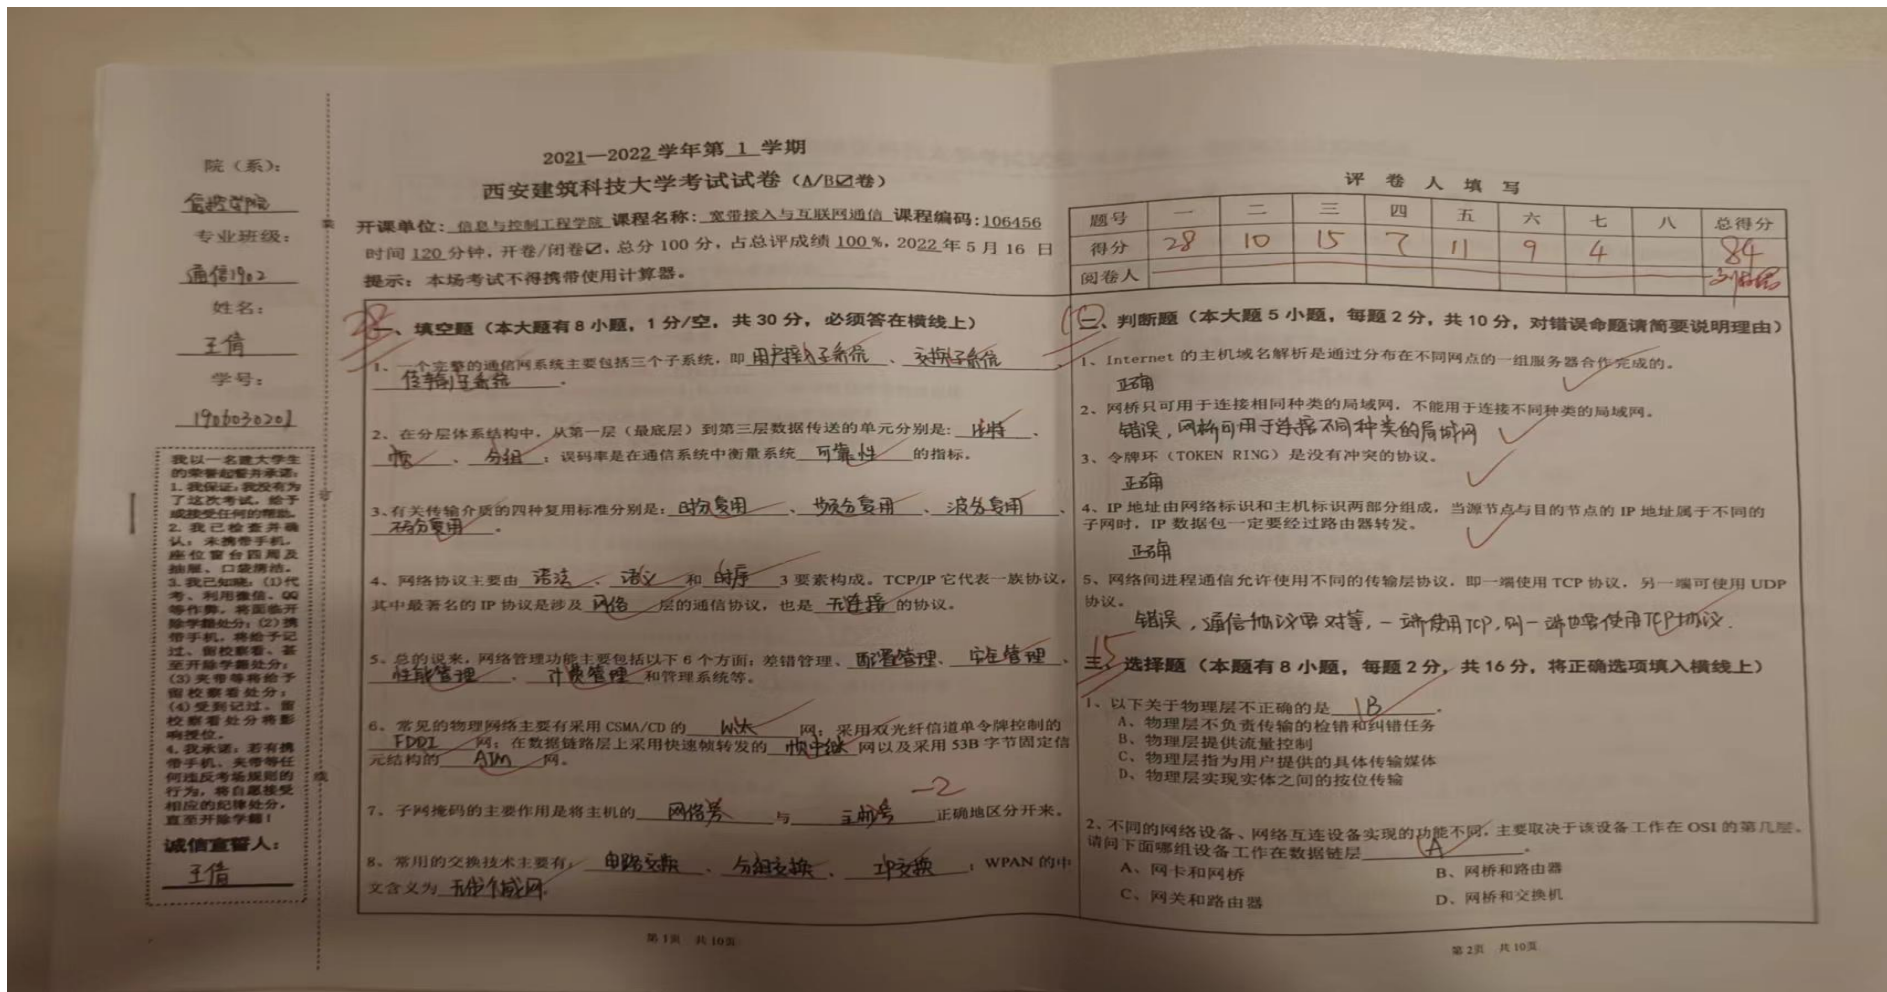 院（系）：
信控学院
专业班级：
通信1902
姓名：
王倩
学号：
1906030201
我以一名建大学生
的荣誉起誓并承诺：
1.我保证：我没有为
了这次考试，给予
或接受任何的帮助。
2.我已检查并确
认：未携带手机，
座位窗台四周及
抽屉、口袋清洁。
3.我已知晓：(1)代
考、利用微信、QQ
等作弊，将面临开
除学籍处分；(2)携
带手机，将给予记
过、留校察看、甚
至开除学籍处分；
(3)夹带等将给予
留校察看处分；
(4)受到记过、留
校察看处分将影
响授位。
4.我承诺：若有携
带手机、夹带等任
何违反考场规则的
行为，将自愿接受
相应的纪律处分，
直至开除学籍！
诚信宣誓人：
王倩
装
订
线
2021—2022学年第 1 学期
西安建筑科技大学考试试卷（A/B☑卷）
开课单位：信息与控制工程学院 课程名称：宽带接入与互联网通信 课程编码：106456
时间 120 分钟，开卷/闭卷☑，总分 100 分，占总评成绩 100 %，2022 年 5 月 16 日
提示：本场考试不得携带使用计算器。
28
一、填空题（本大题有 8 小题，1 分/空，共 30 分，必须答在横线上）
1、一个完整的通信网系统主要包括三个子系统，即 用户接入子系统 、 交换子系统 、
传输子系统 。
2、在分层体系结构中，从第一层（最底层）到第三层数据传送的单元分别是： 比特 、
帧 、 分组 ；误码率是在通信系统中衡量系统 可靠性 的指标。
3、有关传输介质的四种复用标准分别是： 时分复用 、 频分复用 、 波分复用 、
码分复用 。
4、网络协议主要由 语法 、 语义 和 时序 3 要素构成。TCP/IP 它代表一族协议，
其中最著名的 IP 协议是涉及 网络 层的通信协议，也是 无连接 的协议。
5、总的说来，网络管理功能主要包括以下 6 个方面：差错管理、 配置管理 、 安全管理 、
性能管理 、 计费管理 和管理系统等。
6、常见的物理网络主要有采用 CSMA/CD 的 以太 网；采用双光纤信道单令牌控制的
FDDI 网；在数据链路层上采用快速帧转发的 帧中继 网以及采用 53B 字节固定信
元结构的 ATM 网。
-2
7、子网掩码的主要作用是将主机的 网络号 与 主机号 正确地区分开来。
8、常用的交换技术主要有： 电路交换 、 分组交换 、 IP交换 ；WPAN 的中
文含义为 无线个域网
第 1页 共 10页
评 卷 人 填 写
题号 一 二 三 四 五 六 七 八 总得分
得分 28 10 15 7 11 9 4 84
阅卷人
10
二、判断题（本大题 5 小题，每题 2 分，共 10 分，对错误命题请简要说明理由）
1、Internet 的主机域名解析是通过分布在不同网点的一组服务器合作完成的。
正确
2、网桥只可用于连接相同种类的局域网，不能用于连接不同种类的局域网。
错误，网桥可用于连接不同种类的局域网
3、令牌环（TOKEN RING）是没有冲突的协议。
正确
4、IP 地址由网络标识和主机标识两部分组成，当源节点与目的节点的 IP 地址属于不同的
子网时，IP 数据包一定要经过路由器转发。
正确
5、网络间进程通信允许使用不同的传输层协议，即一端使用 TCP 协议，另一端可使用 UDP
协议。
错误，通信协议要对等，一端使用TCP，另一端也要使用TCP协议.
15
三、选择题（本题有 8 小题，每题 2 分，共 16 分，将正确选项填入横线上）
1、以下关于物理层不正确的是 B 。
A、物理层不负责传输的检错和纠错任务
B、物理层提供流量控制
C、物理层指为用户提供的具体传输媒体
D、物理层实现实体之间的按位传输
2、不同的网络设备、网络互连设备实现的功能不同，主要取决于该设备工作在 OSI 的第几层。
请问下面哪组设备工作在数据链层 A 。
A、网卡和网桥 B、网桥和路由器
C、网关和路由器 D、网桥和交换机
第 2页 共 10页